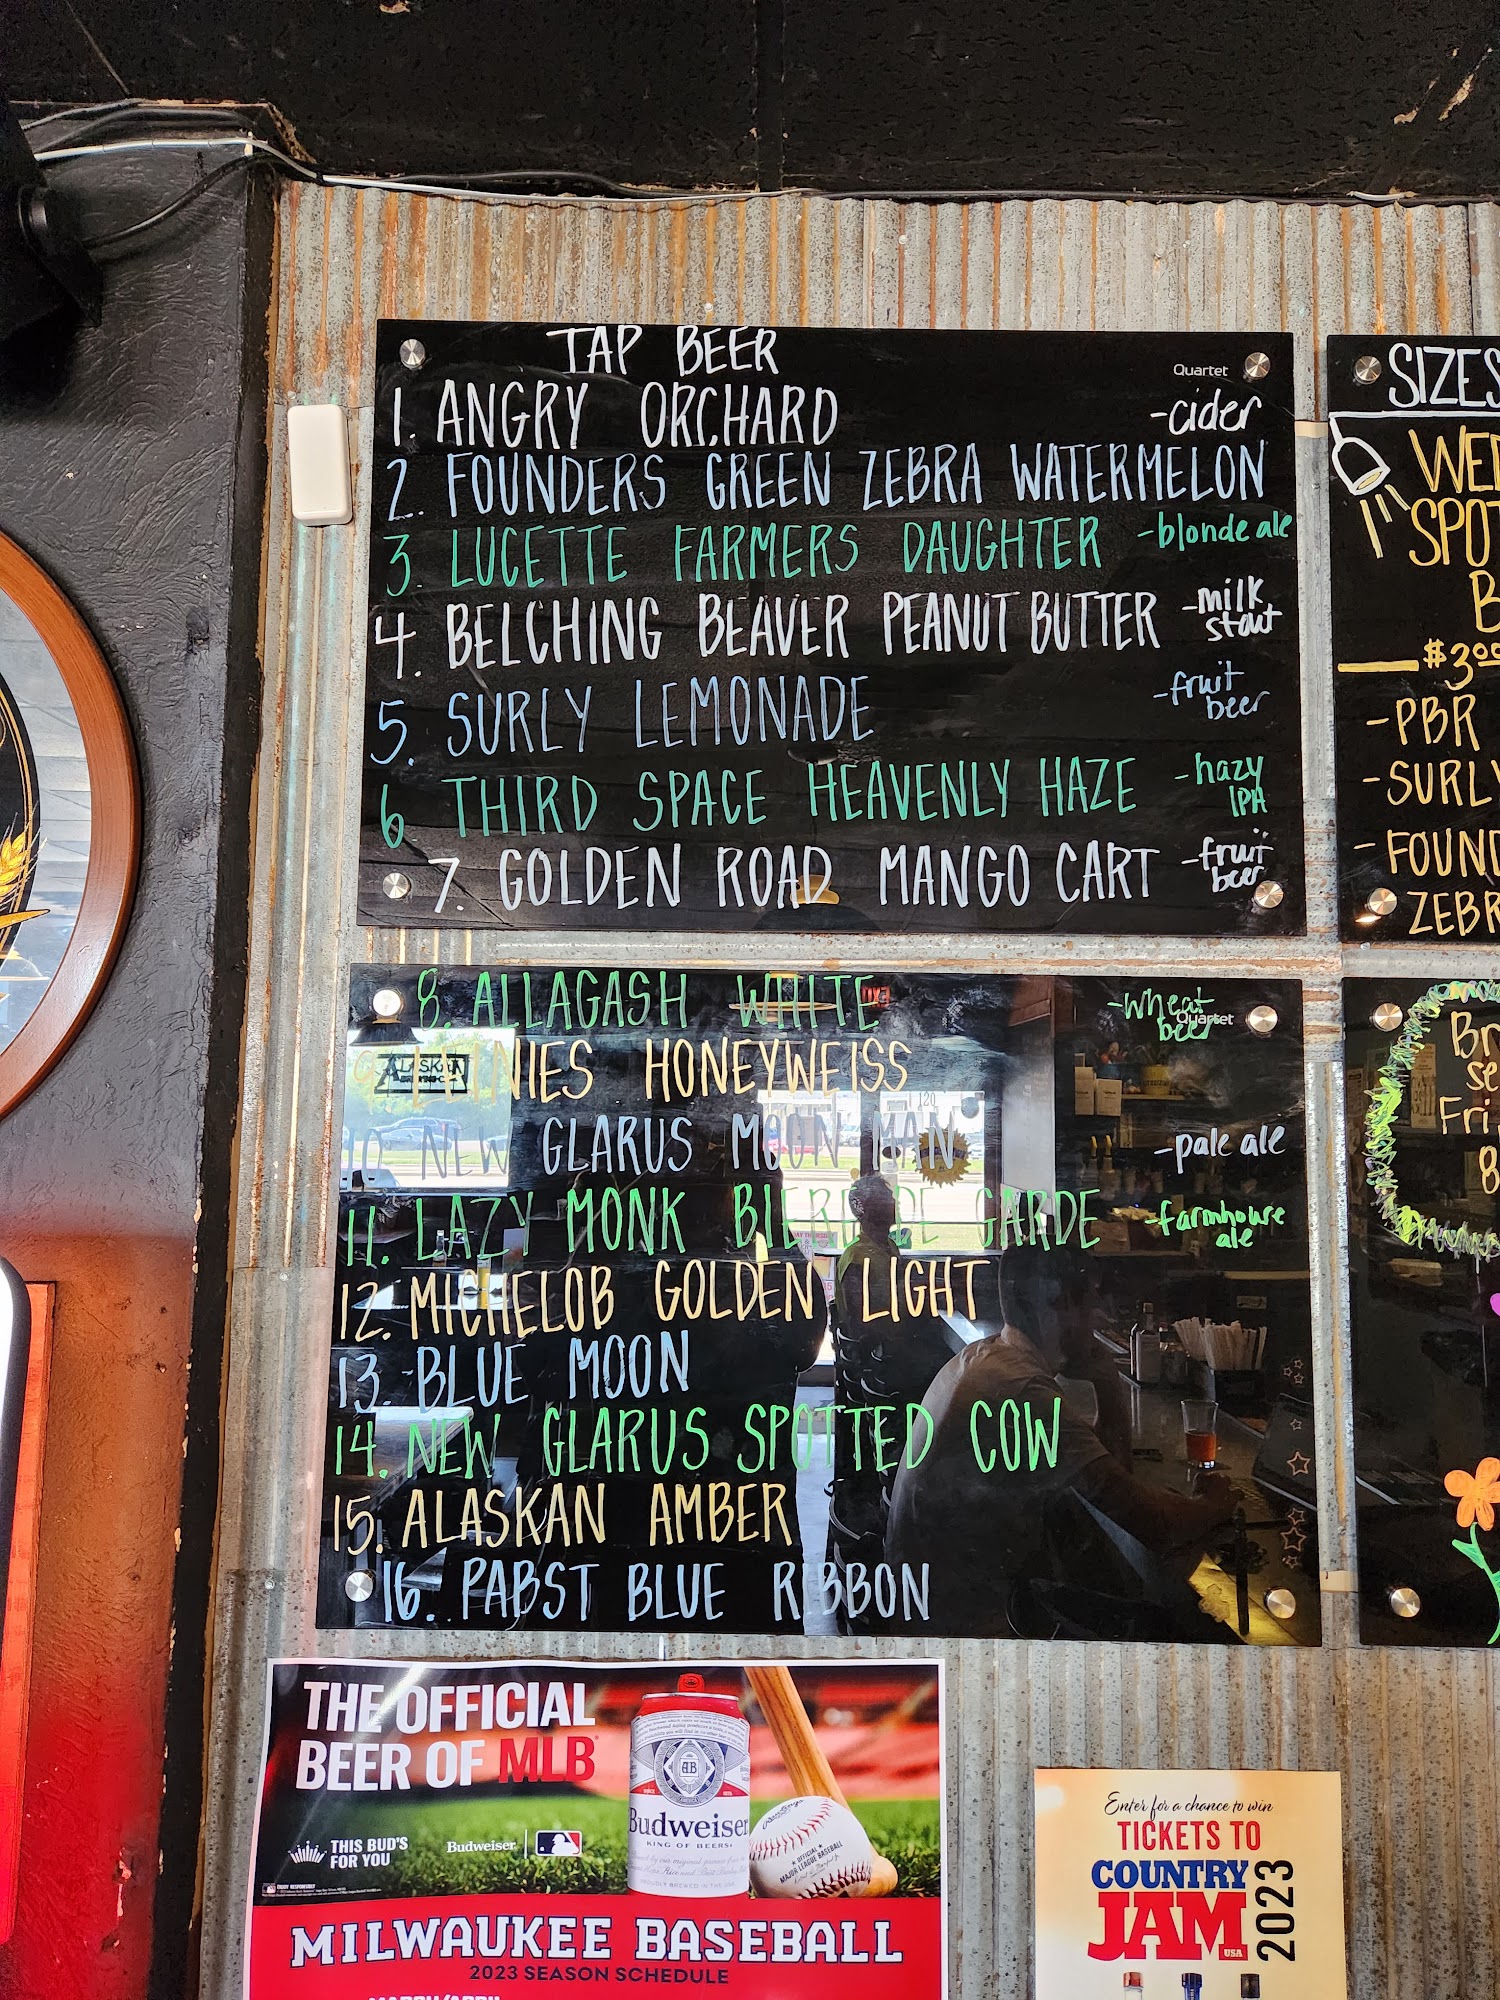 TAP BEER
Quartet
1. ANGRY ORCHARD -cider
2. FOUNDERS GREEN ZEBRA WATERMELON
3. LUCETTE FARMERS DAUGHTER -blonde ale
4. BELCHING BEAVER PEANUT BUTTER -milk
stout
5. SURLY LEMONADE -fruit
beer
6 THIRD SPACE HEAVENLY HAZE -hazy
IPA
7. GOLDEN ROAD MANGO CART -fruit
beer
8. ALLAGASH WHITE -wheat
beer
Quartet
9. LEINIES HONEYWEISS
10. NEW GLARUS MOON MAN -pale ale
11. LAZY MONK BIERE DE GARDE -farmhouse
ale
12. MICHELOB GOLDEN LIGHT
13. BLUE MOON
14. NEW GLARUS SPOTTED COW
15. ALASKAN AMBER
16. PABST BLUE RIBBON
SIZES
WED
SPOT
B
$3.00
-PBR
-SURLY
-FOUND
ZEBR
Br
se
Fri
8
THE OFFICIAL
BEER OF MLB
THIS BUD'S
FOR YOU
Budweiser
Budweiser
KING OF BEERS
Rawlings
OFFICIAL
MAJOR LEAGUE BASEBALL
MILWAUKEE BASEBALL
2023 SEASON SCHEDULE
MARCH/APRIL
Enter for a chance to win
TICKETS TO
COUNTRY
JAM
USA
2023